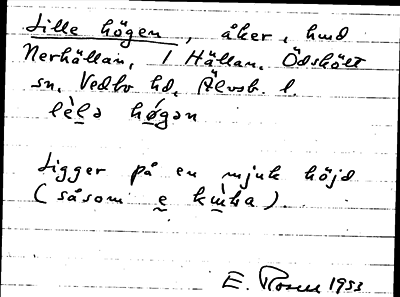 Lille högen, åker, hmd
Nerhällan, 1 Hällan, Ödskölt
sn, Vedbo hd, Älvsb. l.
lèlə hǿgən
Ligger på en mjuk höjd
(såsom e kùha).
E. Rosen 1933